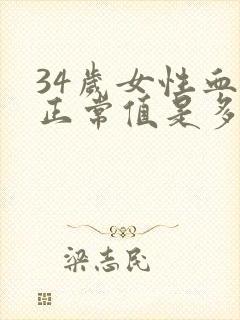 34岁女性血
正常值是多
梁志民